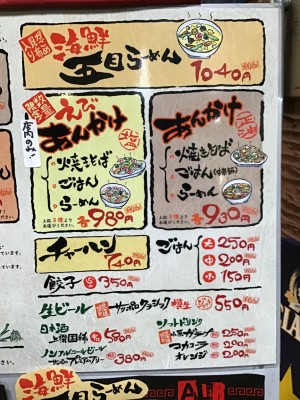 海鮮
五目らーめん
1040円
数量限定
店内のみ!
えび
あんかけ
塩
焼きそば
ごはん
らーめん
各980円
あんかけ
正油
焼きそば
ごはん(中華飯)
らーめん
各930円
チャーハン
740円
餃子 5 350円
ごはん 大 250円
中 200円
小 150円
生ビール サッポロクラシック 樽生 550円
日本酒
上撰国稀
ノンアルコールビール
サッポロプレミアムアルコールフリー 380円
ソフトドリンク
コカコーラ 250円
オレンジ 200円
海鮮
五目らーめん